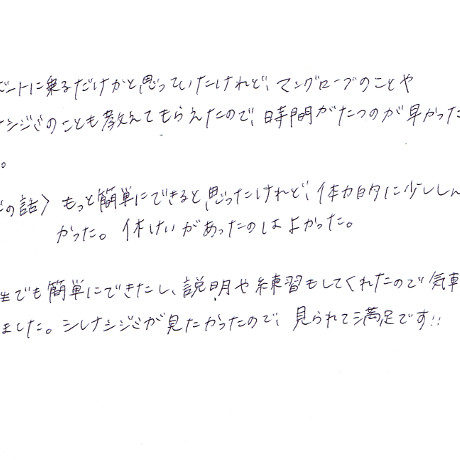 ボートに乗るだけかと思っていたけれど、マングローブのことや
ナシジミのことも教えてもらえたので、時間がたつのが早かった
。
の話〉もっと簡単にできると思ったけれど、体力的に少ししん
かった。休けいがあったのはよかった。
生でも簡単にできたし、説明や練習もしてくれたので気軽
ました。シレナシジミが見たかったので、見られて満足です!!